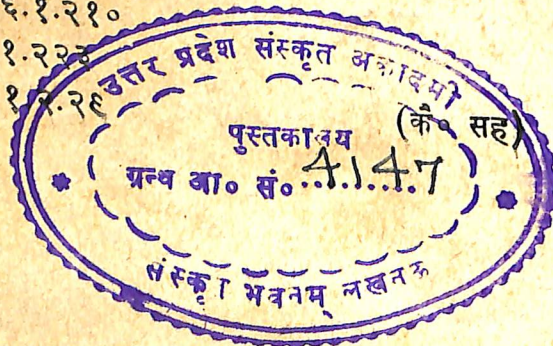 ६.१.२१०
१.२२३
१.२.२६
उत्तर प्रदेश संस्कृत अकादमी
(कं० सह)
पुस्तकालय
ग्रन्थ आ० सं० 4147
संस्कृत भवनम् लखनऊ